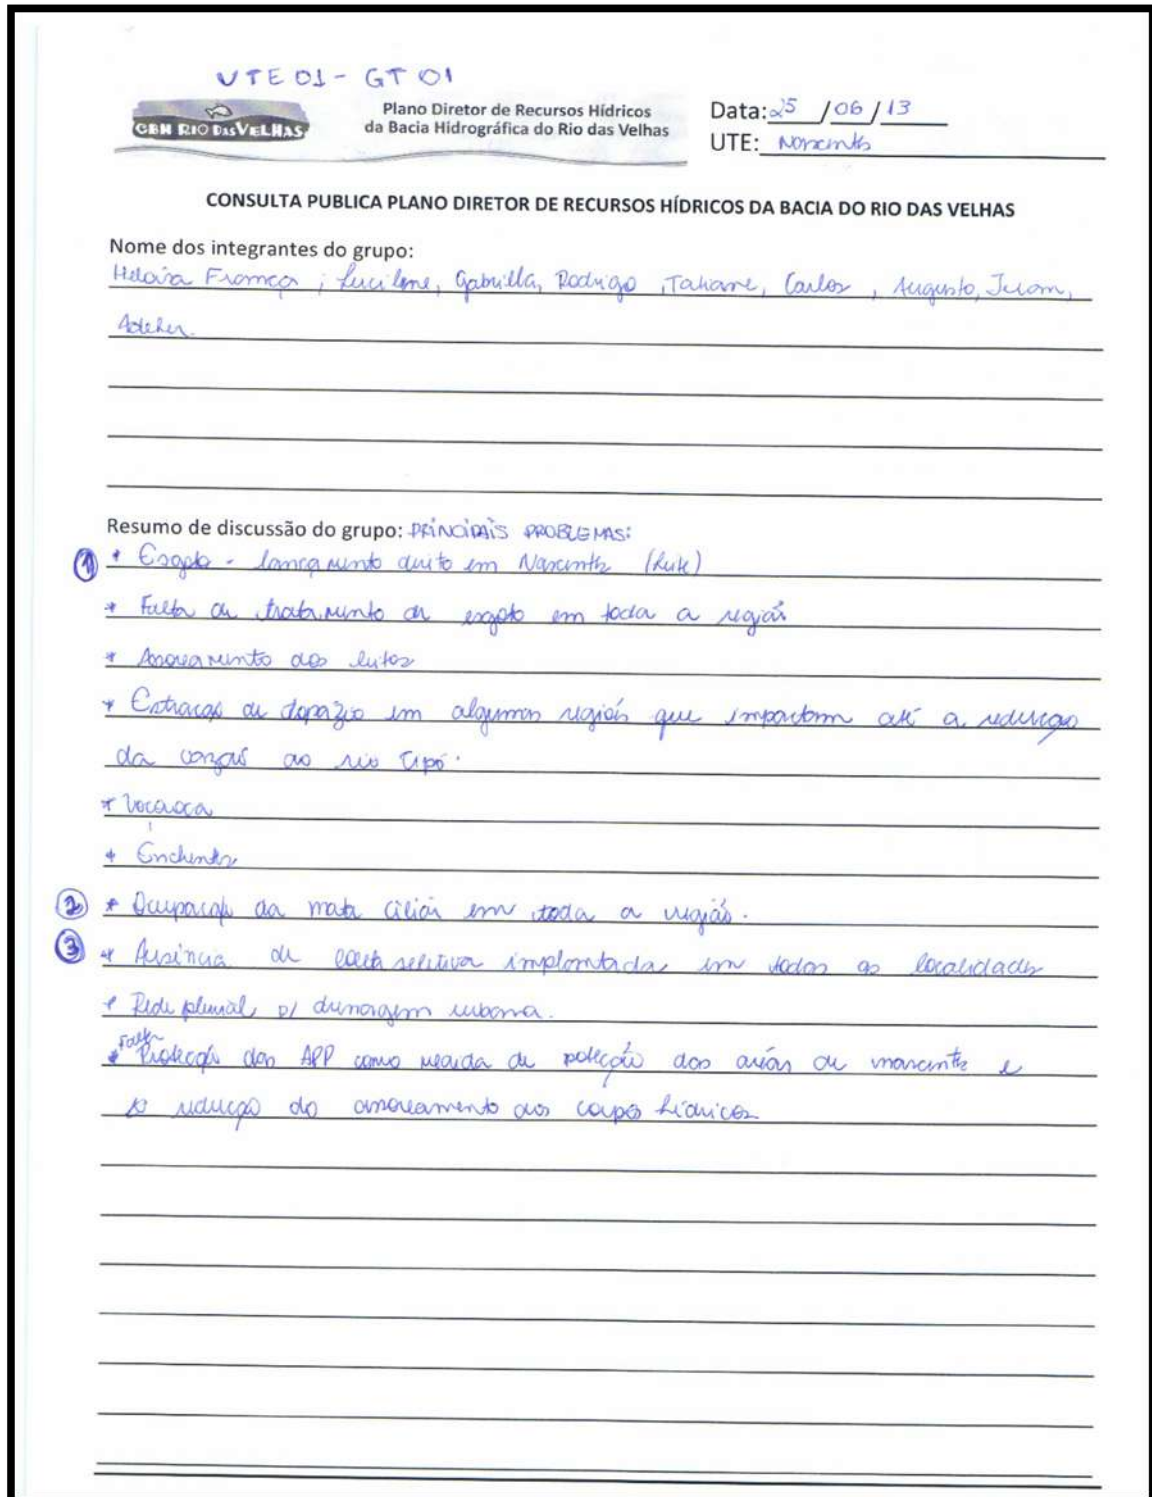 UTE 01 - GT 01
CBH RIO DAS VELHAS
Plano Diretor de Recursos Hídricos
da Bacia Hidrográfica do Rio das Velhas
Data: 25 / 06 / 13
UTE: Nascentes
CONSULTA PUBLICA PLANO DIRETOR DE RECURSOS HÍDRICOS DA BACIA DO RIO DAS VELHAS
Nome dos integrantes do grupo:
Heloisa França ; Lucilene, Gabriella, Rodrigo , Tatiane, Carlos , Augusto, Juan,
Resumo de discussão do grupo: PRINCIPAIS PROBLEMAS:
① * Esgoto - lançamento direto em Nascente
* Falta de tratamento de esgoto em toda a região
* Assoreamento dos leitos
* Extração de topázio em algumas regiões que impactam até a redução
da vazão do rio Cipó.
* Voçoroca
* Enchentes
② * Ocupação da mata ciliar em toda a região.
③ * Ausência de coleta seletiva implantada em todas as localidades
* Rede pluvial p/ drenagem urbana.
* Falta Proteção das APP como medida de proteção das áreas de nascente e
redução do assoreamento dos corpos hídricos